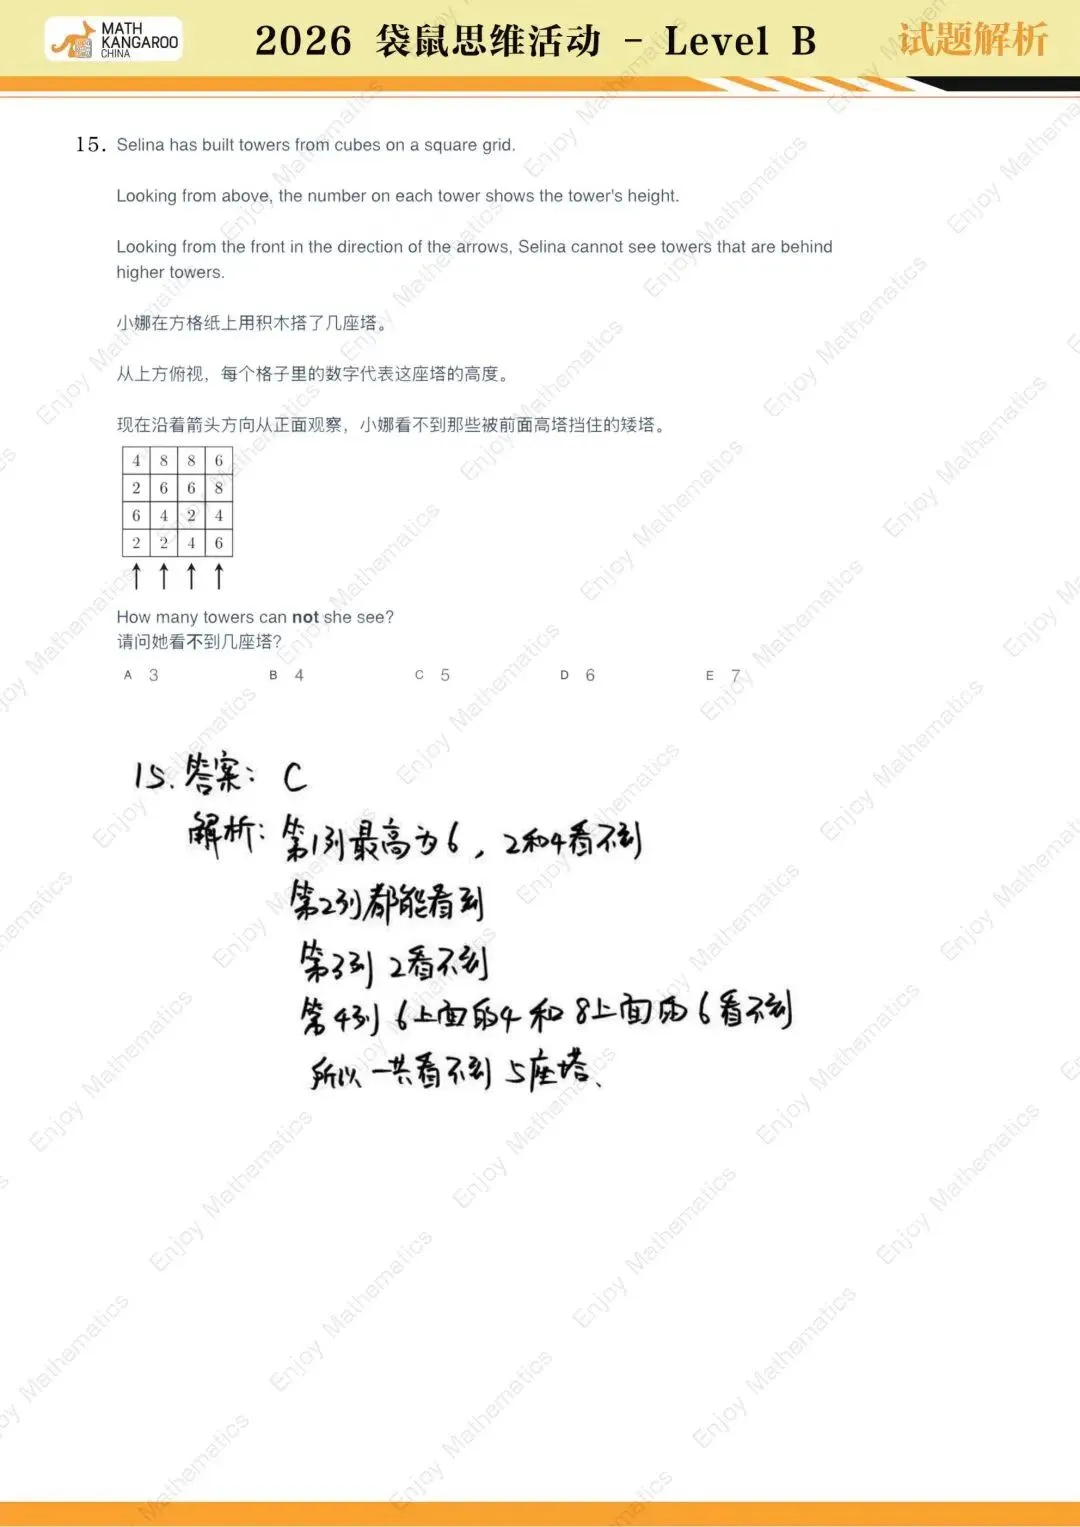 MATH
KANGAROO
CHINA
2026 袋鼠思维活动 - Level B
试题解析
15. Selina has built towers from cubes on a square grid.
Looking from above, the number on each tower shows the tower's height.
Looking from the front in the direction of the arrows, Selina cannot see towers that are behind
higher towers.
小娜在方格纸上用积木搭了几座塔。
从上方俯视，每个格子里的数字代表这座塔的高度。
现在沿着箭头方向从正面观察，小娜看不到那些被前面高塔挡住的矮塔。
4 8 8 6
2 6 6 8
6 4 2 4
2 2 4 6
How many towers can not she see?
请问她看不到几座塔?
A 3 B 4 C 5 D 6 E 7
15. 答案: C
解析: 第1列最高为6，2和4看不到
第2列都能看到
第3列 2看不到
第4列 6上面的4 和 8上面的 6看不到
所以 一共看不到 5座塔、
Enjoy Mathematics